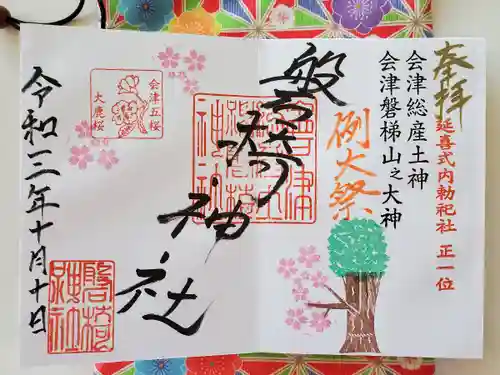 奉拝
延喜式内勅祀社 正一位
会津総産土神
会津磐梯山之大神
例大祭
磐椅神社
会津五桜
大鹿桜
令和三年十月十日
磐椅
神社